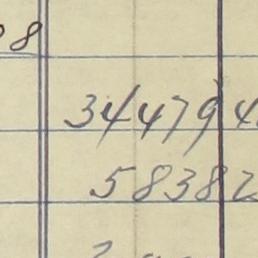 08
34479 4
5838 2